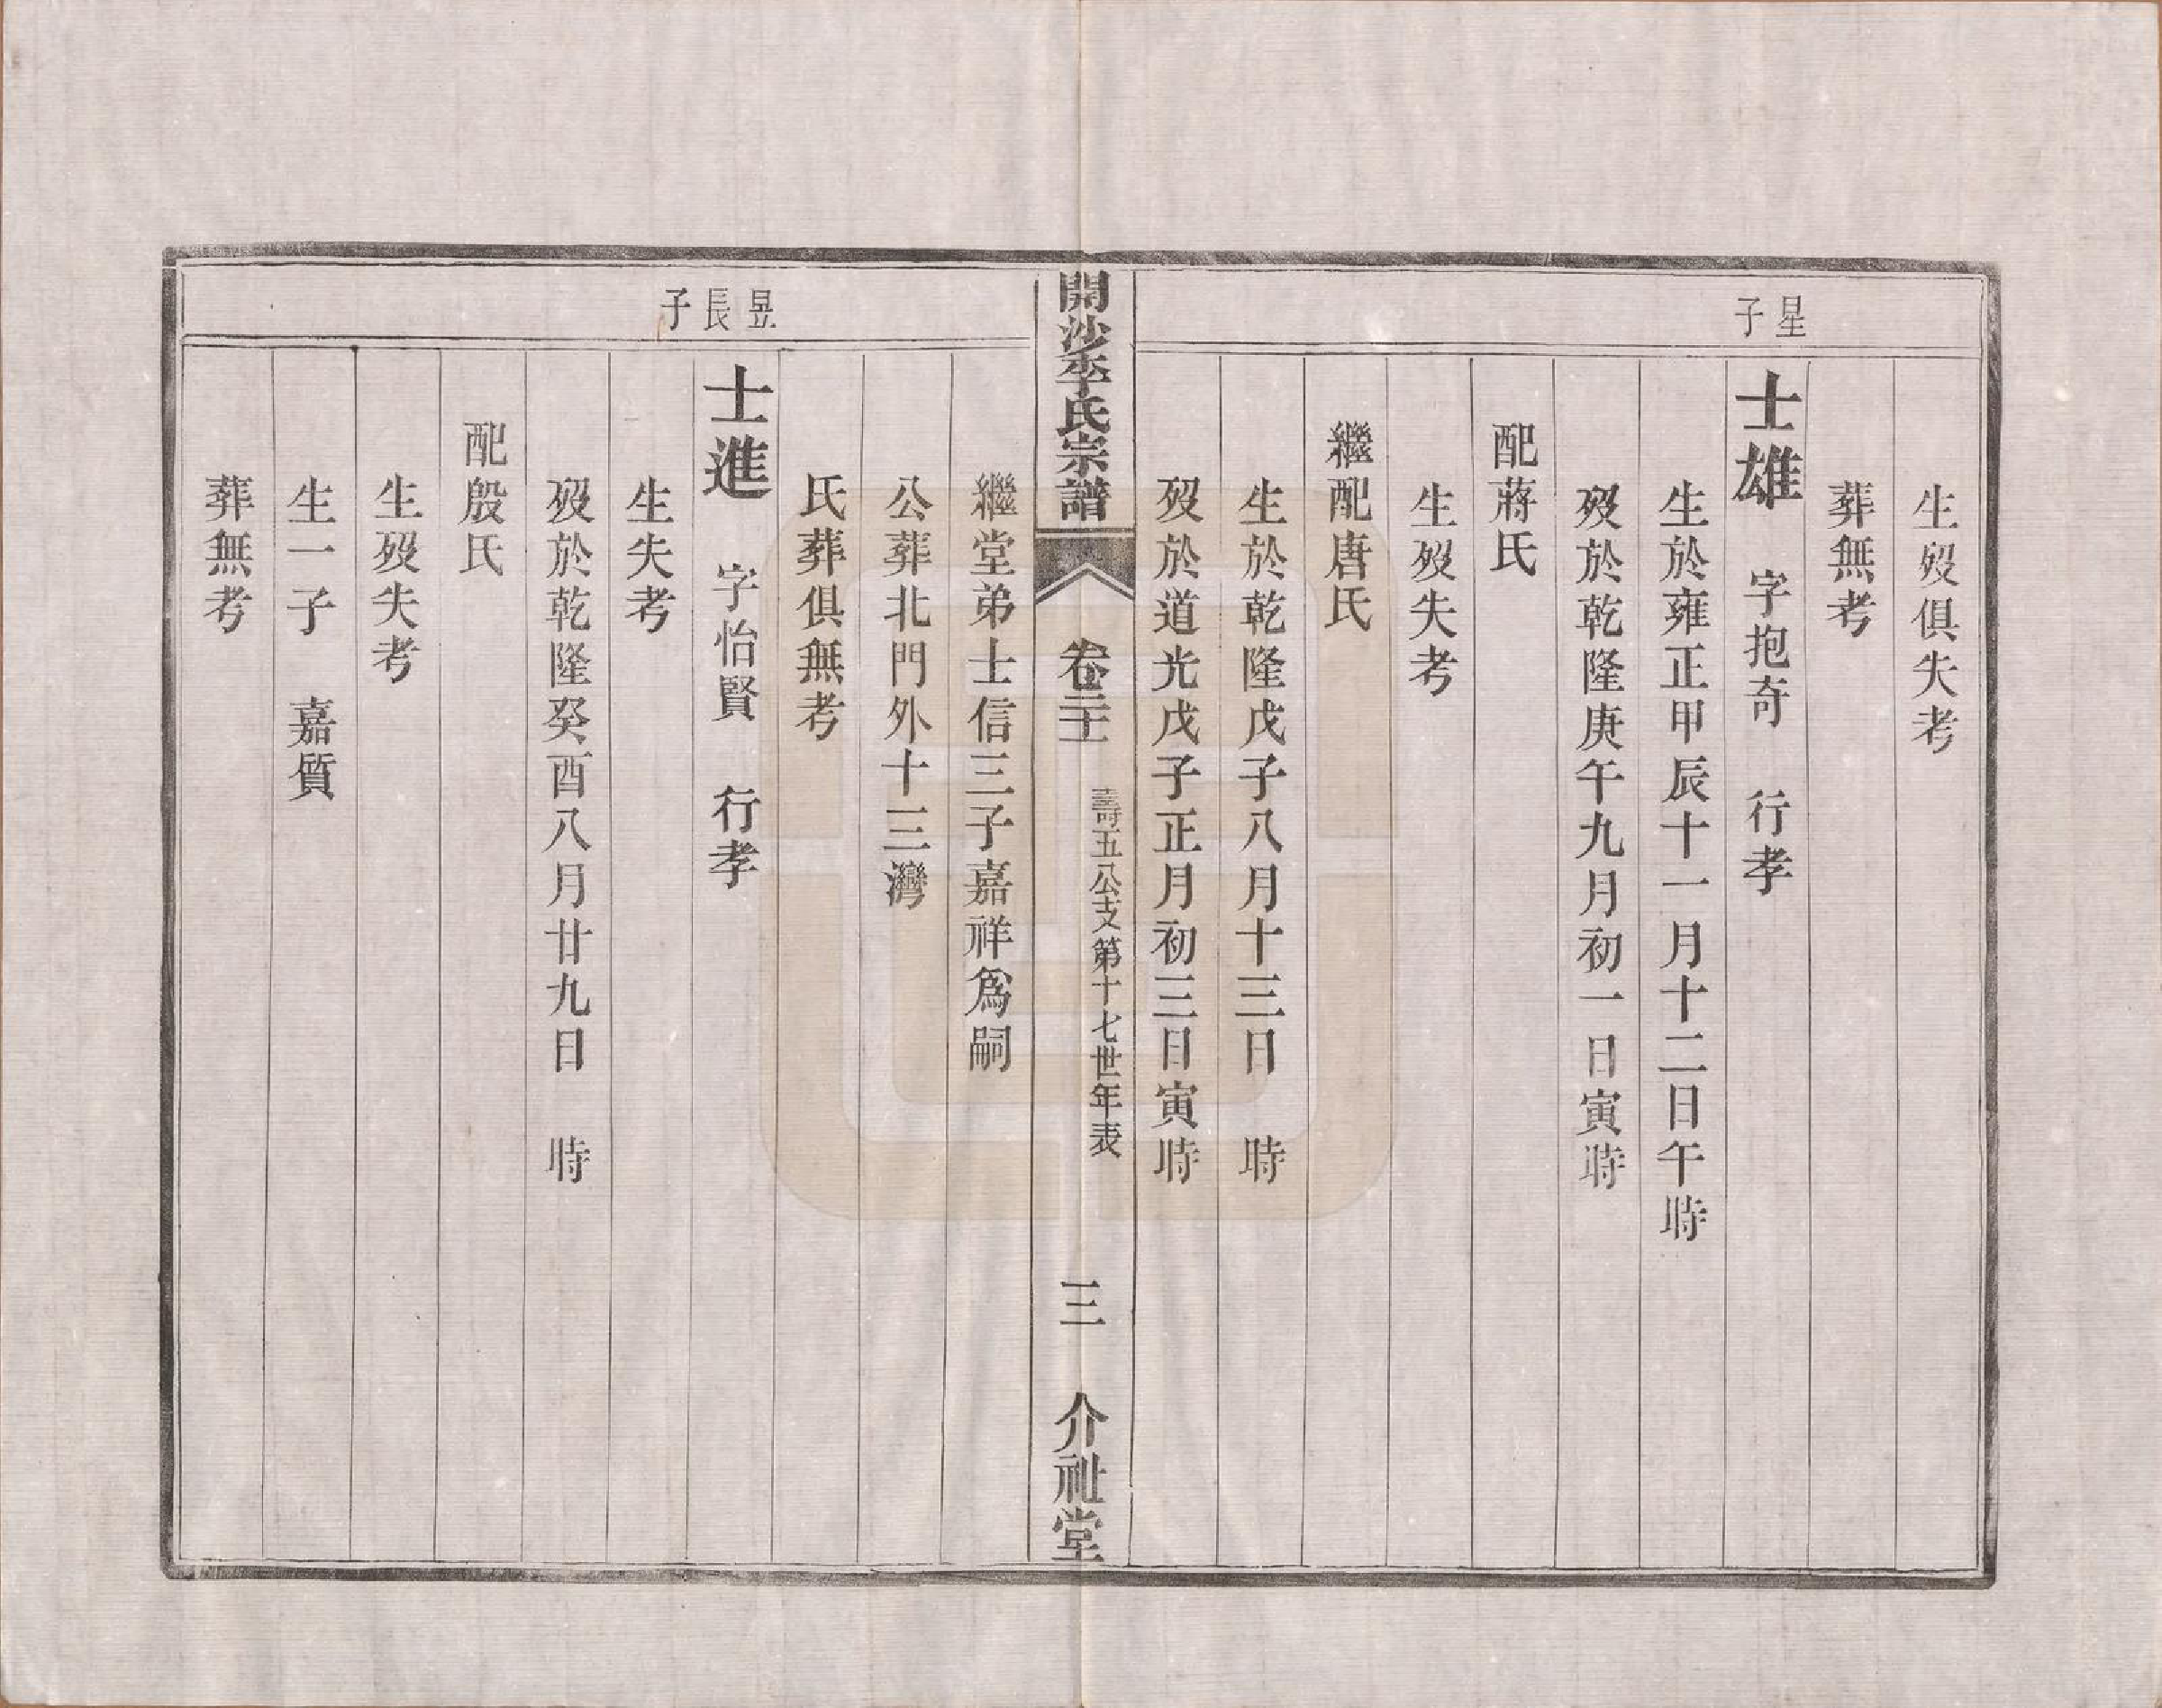 生歿俱失考
葬無考
星子
士雄　字抱奇　行孝
生於雍正甲辰十一月十二日午時
歿於乾隆庚午九月初一日寅時
配蔣氏
生歿失考
繼配唐氏
生於乾隆戊子八月十三日　時
歿於道光戊子正月初三日寅時
開沙李氏宗譜
卷二十
壽五公支第十七世年表
三
介祉堂
繼堂弟士信三子嘉祥爲嗣
公葬北門外十三灣
氏葬俱無考
昱長子
士進　字怡賢　行孝
生失考
歿於乾隆癸酉八月廿九日　時
配殷氏
生歿失考
生一子　嘉質
葬無考